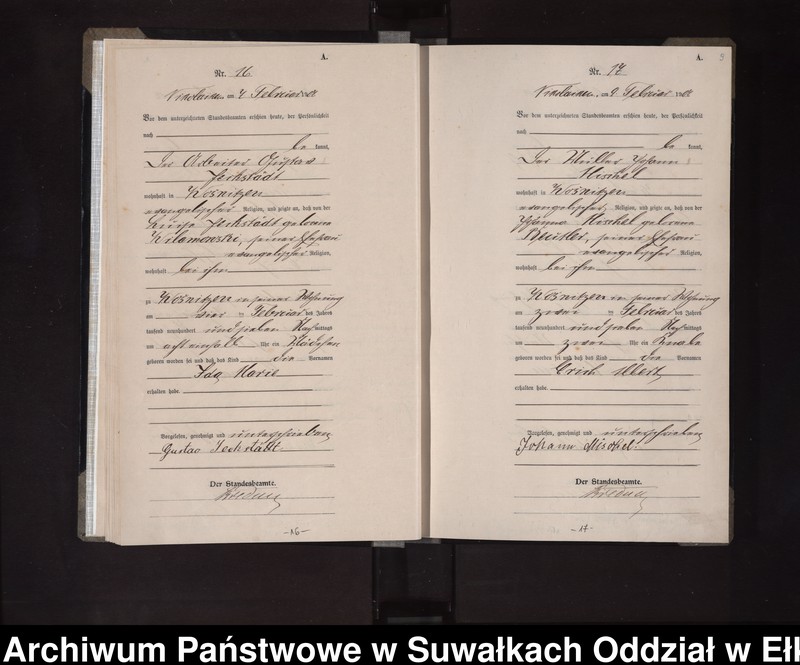 A.
Nr. 16
am 4 Februar 19
Vor dem unterzeichneten Standesbeamten erschien heute, der Persönlichkeit
nach
be kannt,
Der Arbeiter Gustav
wohnhaft in Kosnitzen
evangelischer Religion, und zeigte an, daß von der
geborene
seiner Ehefrau
evangelischer Religion,
wohnhaft bei ihm
zu Kosnitzen in seiner Wohnung
am vier ten Februar des Jahres
tausend neunhundert und sieben Nachmittags
um acht einhalb Uhr ein Mädchen
geboren worden sei und daß das Kind die Vornamen
Ida Marie
erhalten habe.
Vorgelesen, genehmigt und unterschrieben
Gustav
Der Standesbeamte.
-16-
A. 9
Nr. 17
am 9 Februar 19
Vor dem unterzeichneten Standesbeamten erschien heute, der Persönlichkeit
nach
be kannt,
Der Müller Johann
wohnhaft in Kosnitzen
evangelischer Religion, und zeigte an, daß von der
Johanna geborene
seiner Ehefrau
evangelischer Religion,
wohnhaft bei ihm
zu Kosnitzen in seiner Wohnung
am zwei ten Februar des Jahres
tausend neunhundert und sieben Nachmittags
um zwei Uhr ein Knabe
geboren worden sei und daß das Kind die Vornamen
Erich Albert
erhalten habe.
Vorgelesen, genehmigt und unterschrieben
Johann
Der Standesbeamte.
-17-
Archiwum Państwowe w Suwałkach Oddział w Ełk